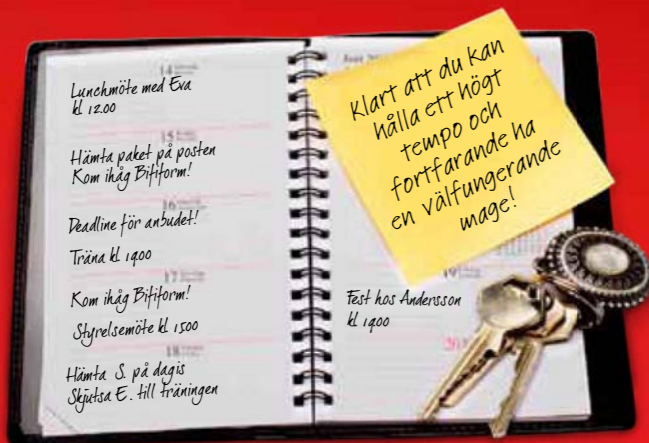 14
Lunchmöte med Eva
kl 12.00
15
Hämta paket på posten
Kom ihåg Bifiform!
16
Deadline för anbudet!
Träna kl 1900
17
Kom ihåg Bifiform!
Styrelsemöte kl 1500
18
Hämta S. på dagis
Skjutsa E. till träningen
Klart att du kan
hålla ett högt
tempo och
fortfarande ha
en välfungerande
mage!
19
Fest hos Andersson
kl 1900
20